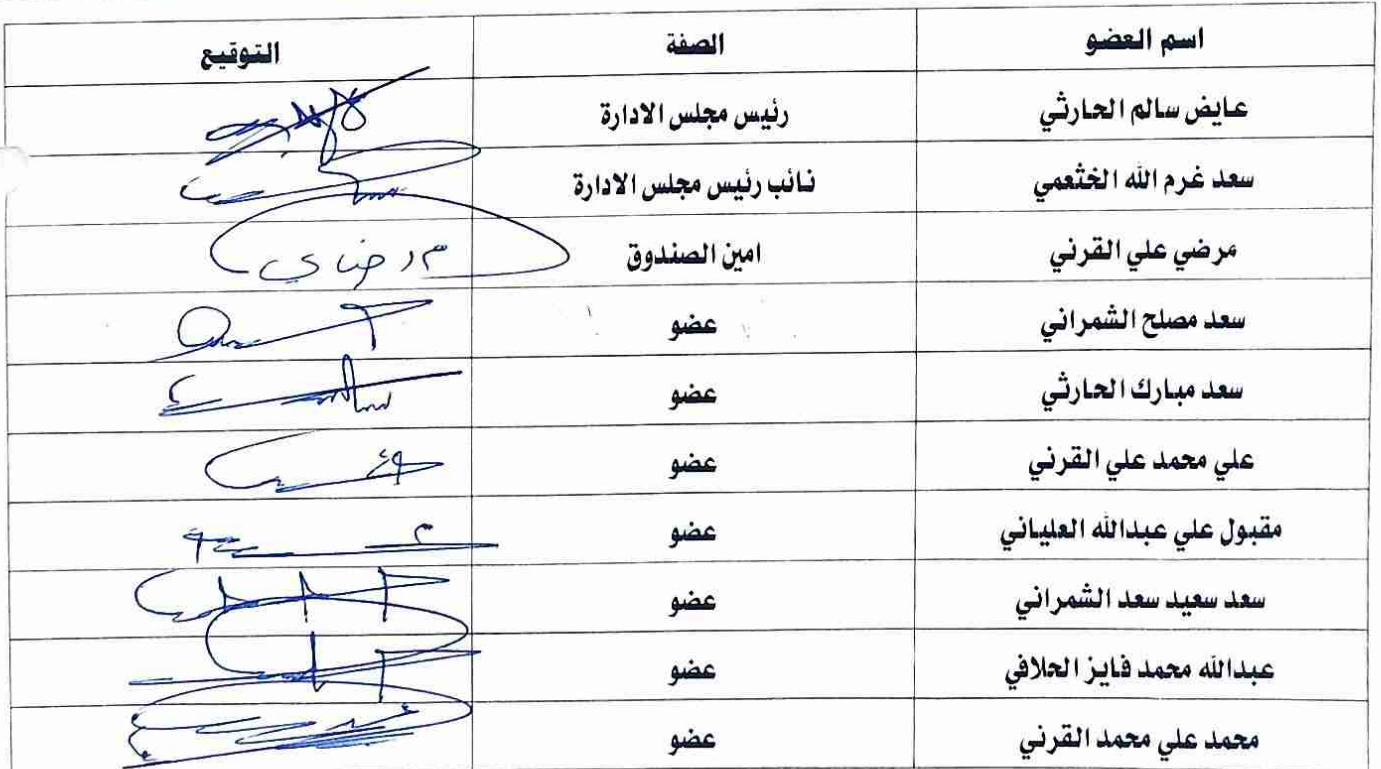 اسم العضو الصفة التوقيع
عايض سالم الحارثي رئيس مجلس الادارة
سعد غرم الله الخثعمي نائب رئيس مجلس الادارة
مرضي علي القرني امين الصندوق
سعد مصلح الشمراني عضو
سعد مبارك الحارثي عضو
علي محمد علي القرني عضو
مقبول علي عبدالله العلياني عضو
سعد سعيد سعد الشمراني عضو
عبدالله محمد فايز الحلافي عضو
محمد علي محمد القرني عضو